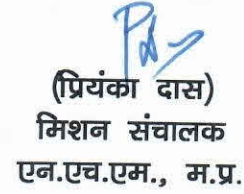 (प्रियंका दास)
मिशन संचालक
एन.एच.एम., म.प्र.